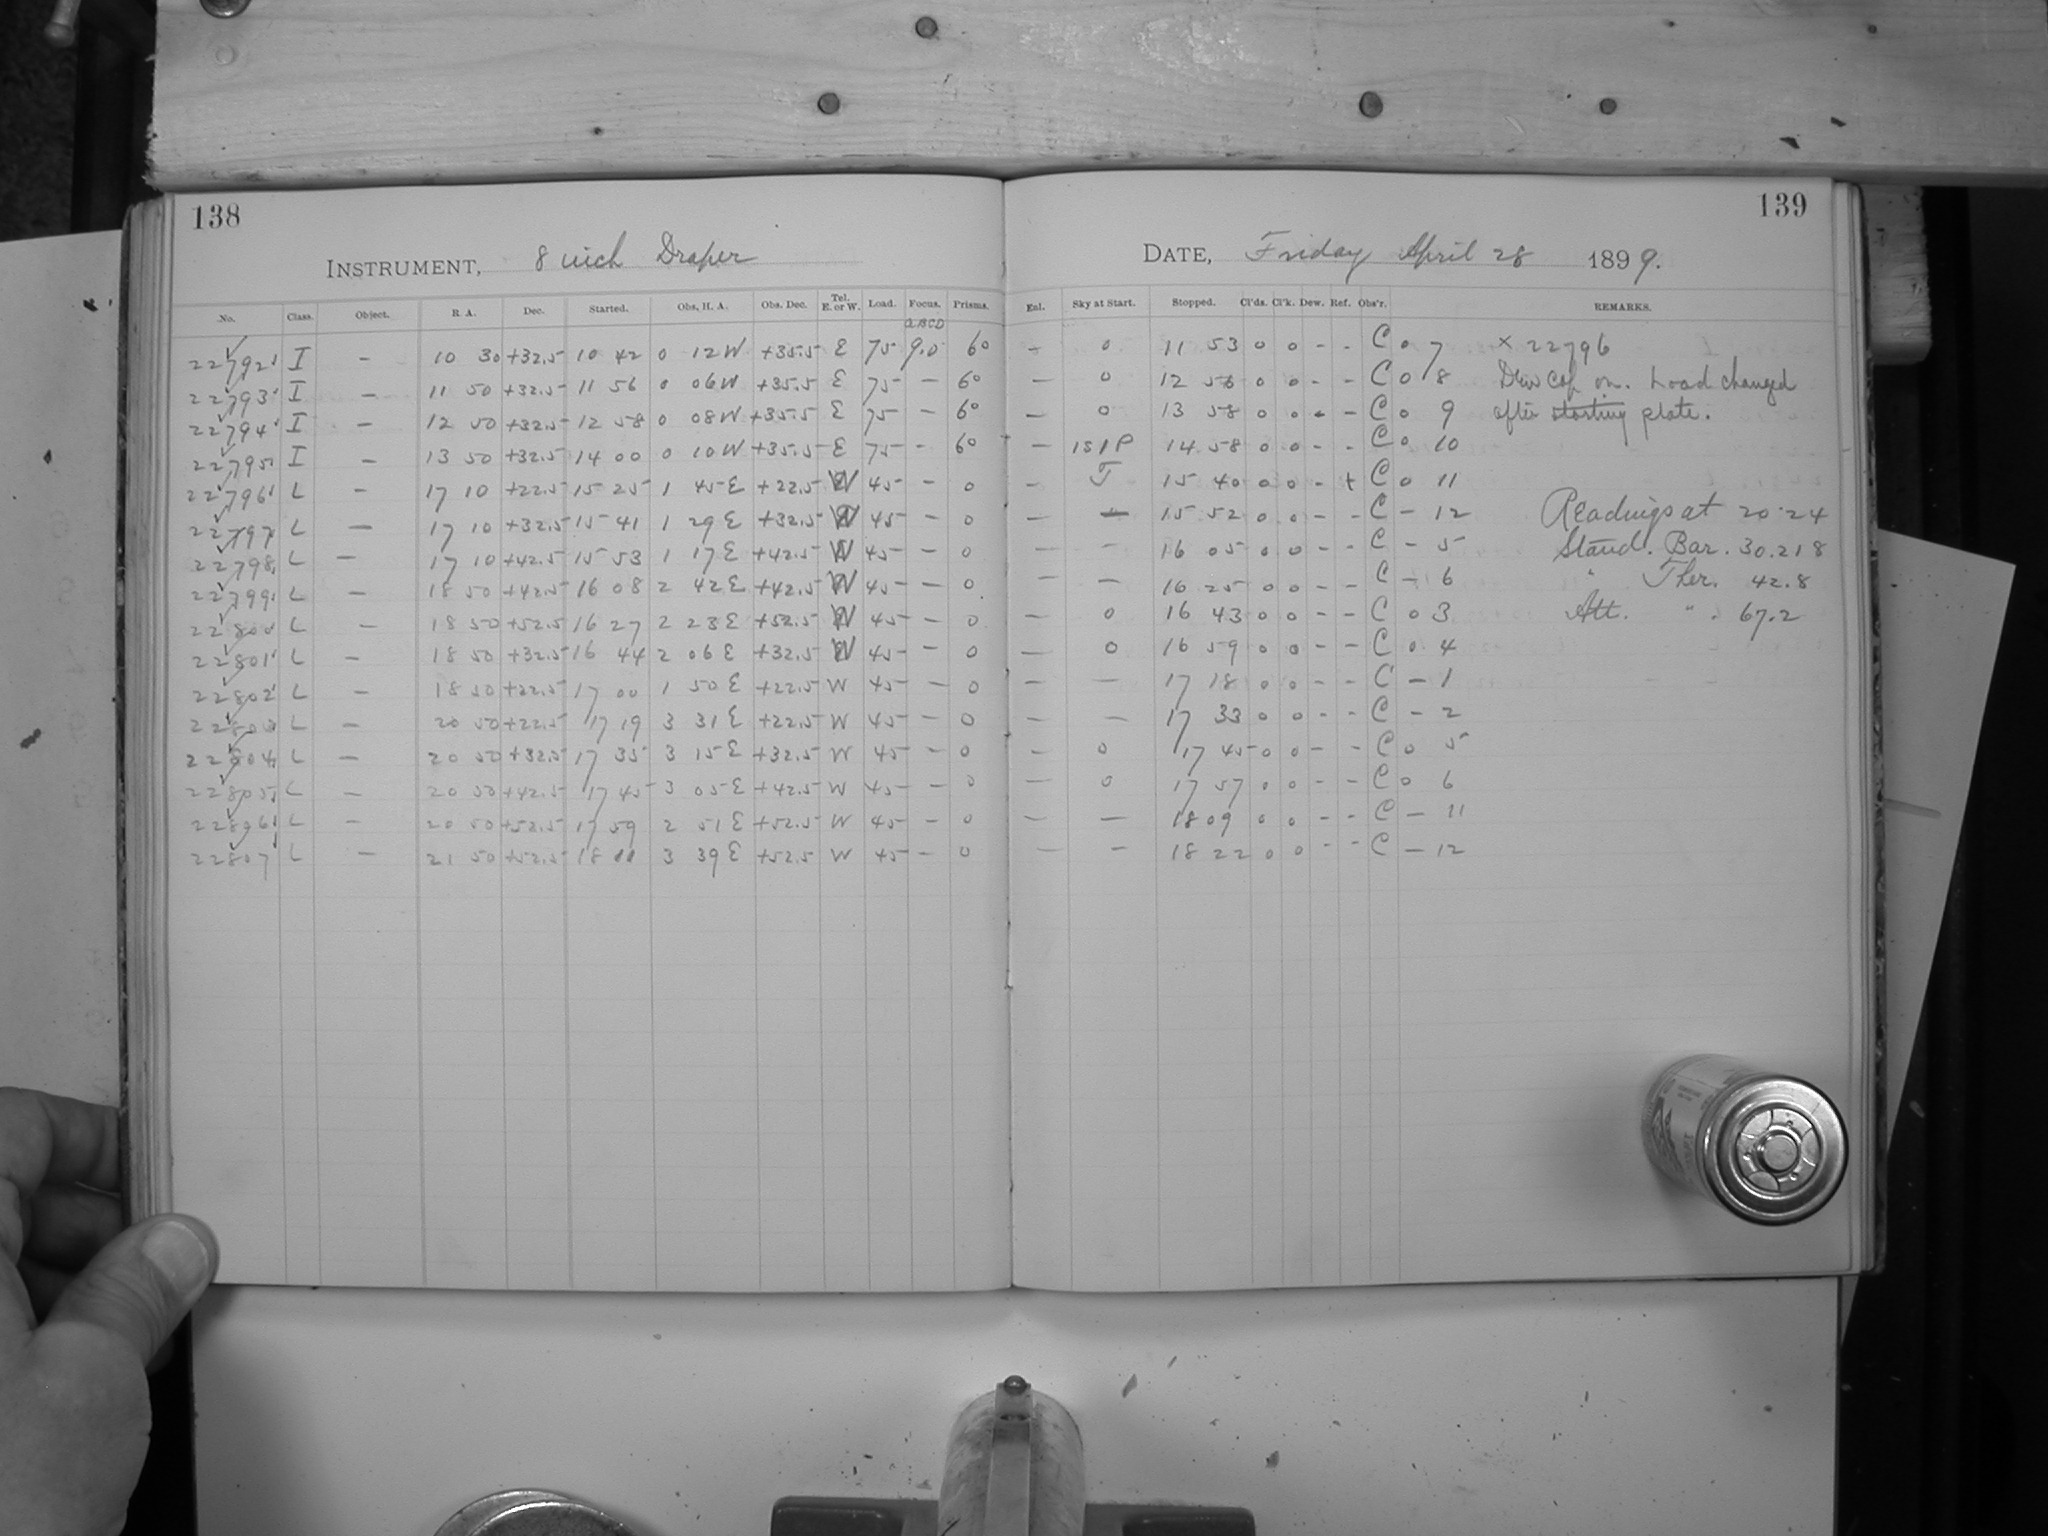 138
INSTRUMENT, 8 inch Draper
No. Class. Object. R. A. Dec. Started. Obs. H. A. Obs. Dec. Tel. E. or W. Load. Focus. Prisms.
ABCD
22792 I – 10 30 +32.5 10 42 0 12 W +35.5 E 75 9.0 60
22793 I – 11 50 +32.5 11 56 0 06 W +35.5 E 75 – 60
22794 I – 12 50 +32.5 12 58 0 08 W +35.5 E 75 – 60
22795 I – 13 50 +32.5 14 00 0 10 W +35.5 E 75 – 60
22796 L – 17 10 +22.5 15 25 1 45 E +22.5 W 45 – 0
22797 L – 17 10 +32.5 15 41 1 29 E +32.5 W 45 – 0
22798 L – 17 10 +42.5 15 53 1 17 E +42.5 W 45 – 0
22799 L – 18 50 +42.5 16 08 2 42 E +42.5 W 45 – 0
22800 L – 18 50 +52.5 16 27 2 23 E +52.5 W 45 – 0
22801 L – 18 50 +32.5 16 44 2 06 E +32.5 W 45 – 0
22802 L – 18 50 +22.5 17 00 1 50 E +22.5 W 45 – 0
22803 L – 20 50 +22.5 17 19 3 31 E +22.5 W 45 – 0
22804 L – 20 50 +32.5 17 35 3 15 E +32.5 W 45 – 0
22805 L – 20 50 +42.5 17 45 3 05 E +42.5 W 45 – 0
22806 L – 20 50 +52.5 17 59 2 51 E +52.5 W 45 – 0
22807 L – 21 50 +52.5 18 11 3 39 E +52.5 W 45 – 0
139
DATE, Friday April 28 1899.
Enl. Sky at Start. Stopped. Cl'ds. Cl'k. Dew. Ref. Obs'r. REMARKS.
– 0 11 53 0 0 - - C 0 7 × 22796
– 0 12 56 0 0 - - C 0 8 Dew cap on. Load changed
– 0 13 58 0 0 - - C 0 9 after starting plate.
– 151P 14 58 0 0 - - C 0 10
– J 15 40 0 0 - + C 0 11
– – 15 52 0 0 - - C – 12 Readings at 20.24
– – 16 05 0 0 - - C – 5 Stand. Bar. 30.218
– – 16 25 0 0 - - C – 6 " Ther. 42.8
– 0 16 43 0 0 - - C 0 3 Att. " . 67.2
– 0 16 59 0 0 - - C 0 4
– – 17 18 0 0 - - C – 1
– – 17 33 0 0 - - C – 2
– 0 17 45 0 0 - - C 0 5
– 0 17 57 0 0 - - C 0 6
– – 18 09 0 0 - - C – 11
– – 18 22 0 0 - - C – 12